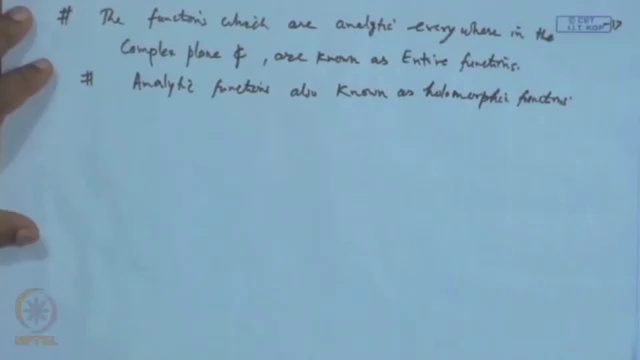 # The functions which are analytic every where in the
Complex plane ₵, are known as Entire functions.
# Analytic functions also known as holomorphic functions.
© CET
I.I.T. KGP
NPTEL